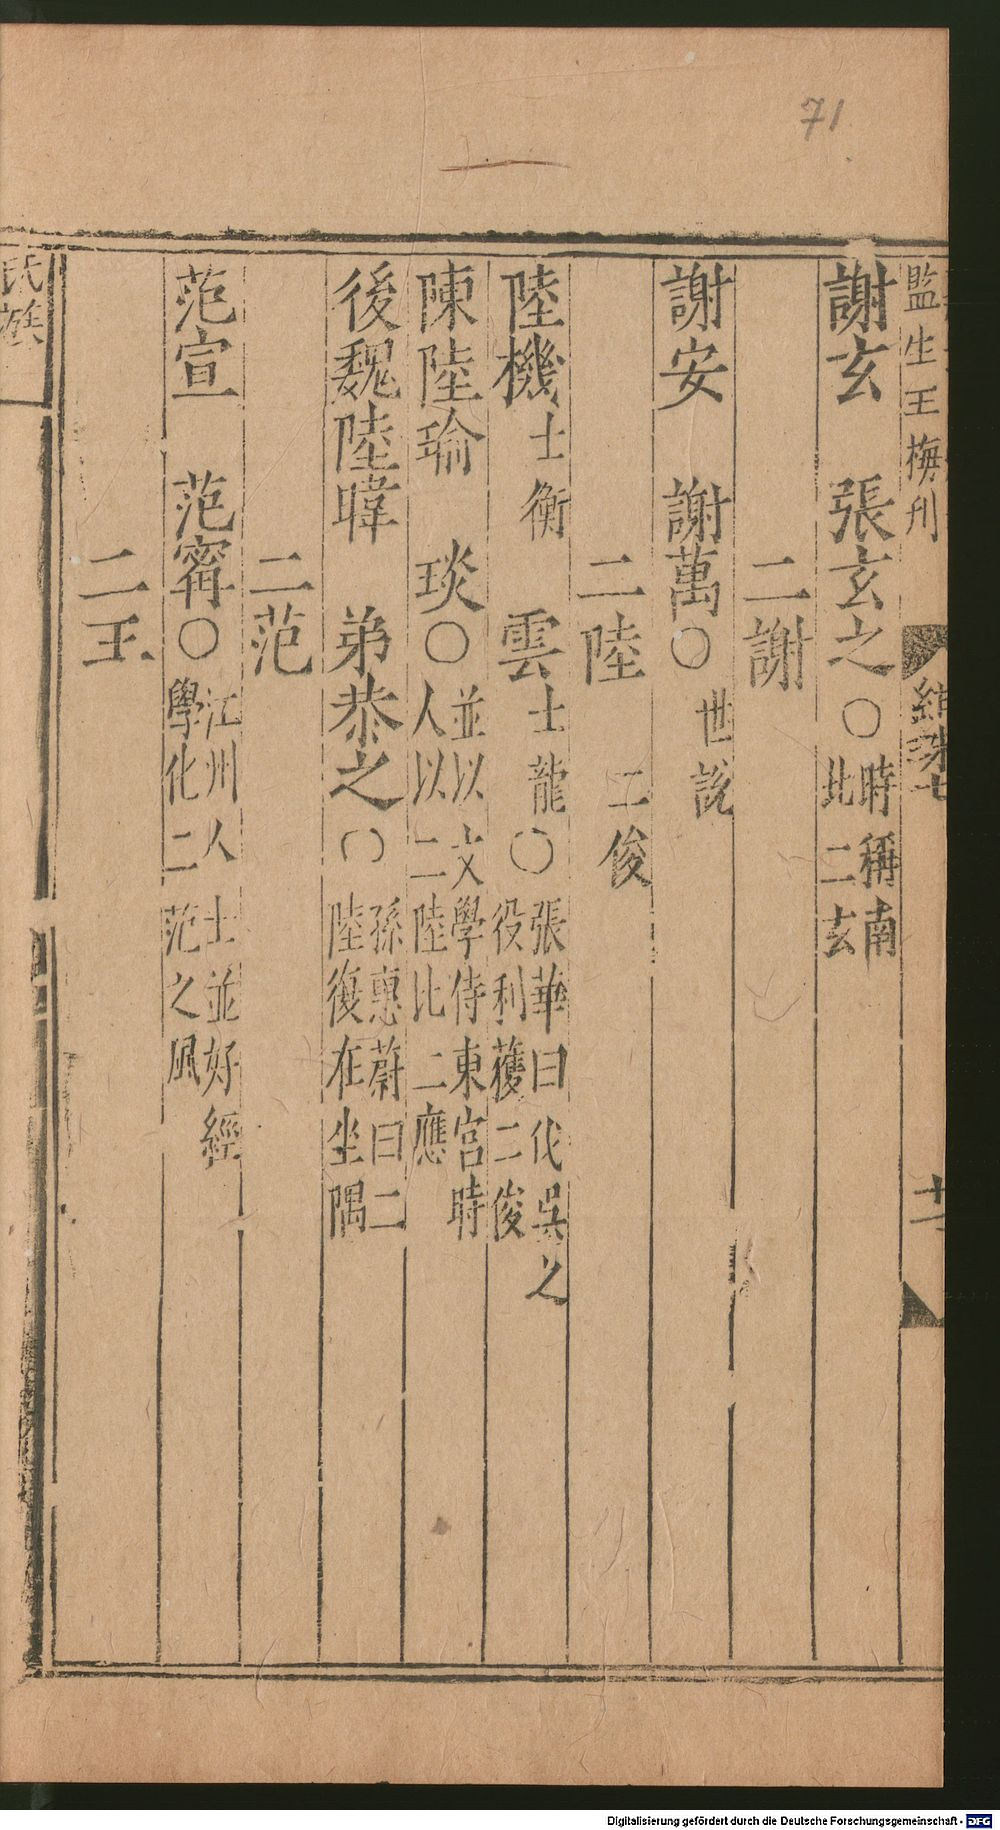 71
監生王梅刋
紺珠七
十一
謝玄　張玄之〇時稱南此二玄
二謝
謝安　謝萬〇世說
二陸　二俊
陸機士衡　雲士龍〇張華曰伐吳之役利獲二俊
陳陸瑜　琰〇並以文學侍東宮時人以二陸比二應
後魏陸暐　弟恭之〇孫惠蔚曰二陸復在坐隅
二范
范宣　范甯〇江州人士並好經學化二范之風
二王
氏族
Digitalisierung gefördert durch die Deutsche Forschungsgemeinschaft - DFG